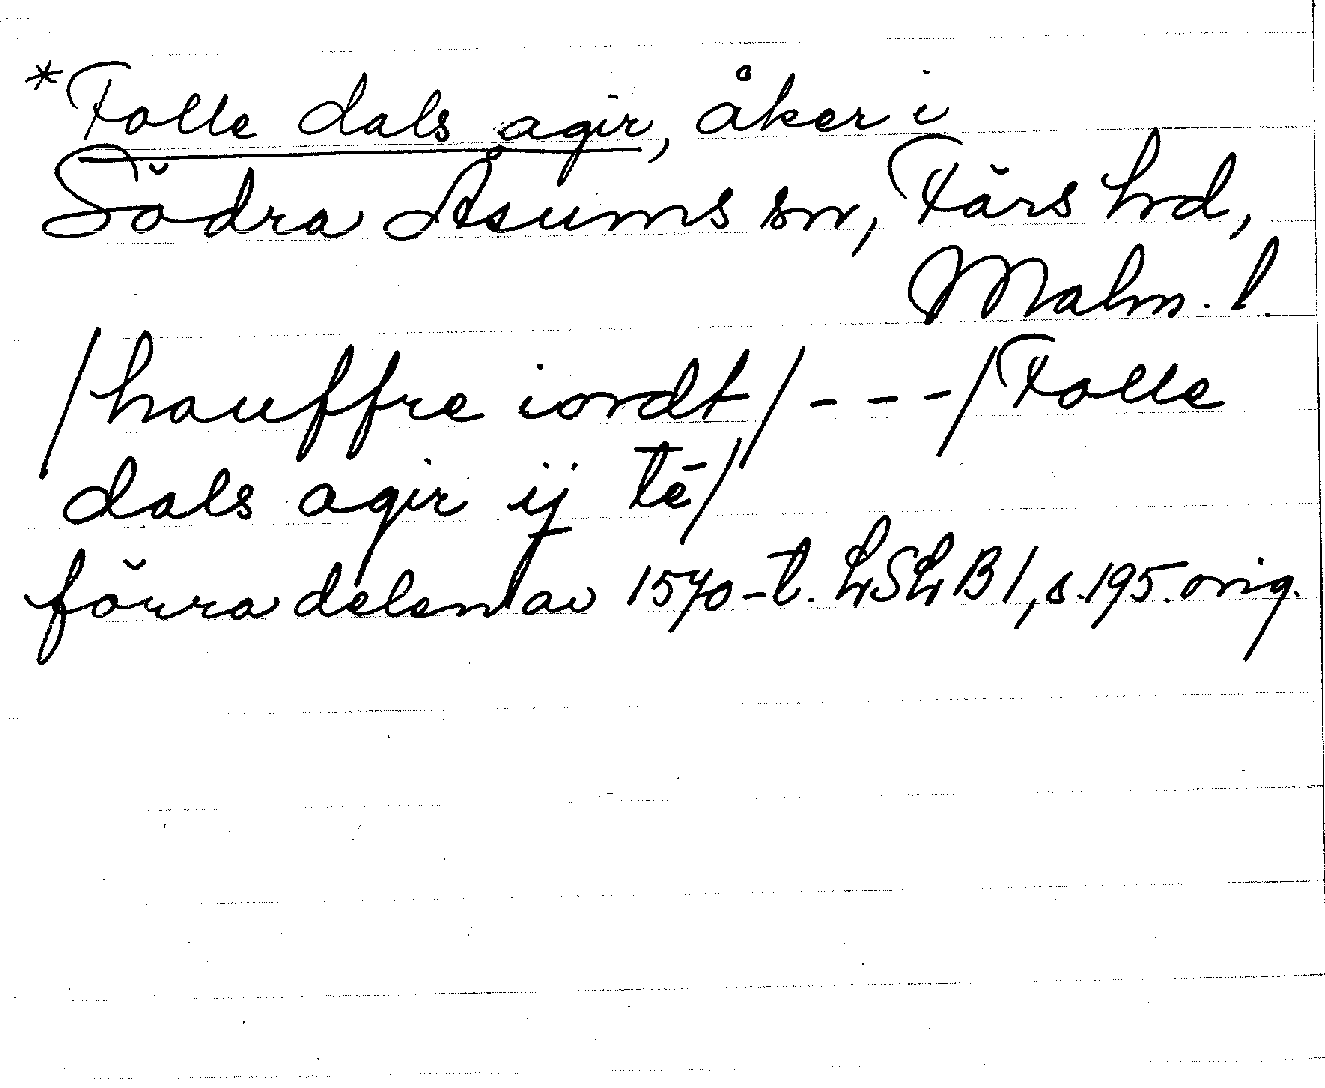 *Folle dals agir, åker i
Södra Åsums sn, Färs hd,
Malm. l.
/hauffre iordt/---/Folle
dals agir ij tē/
förra delen av 1570-t. LSLB 1, s. 195. orig.